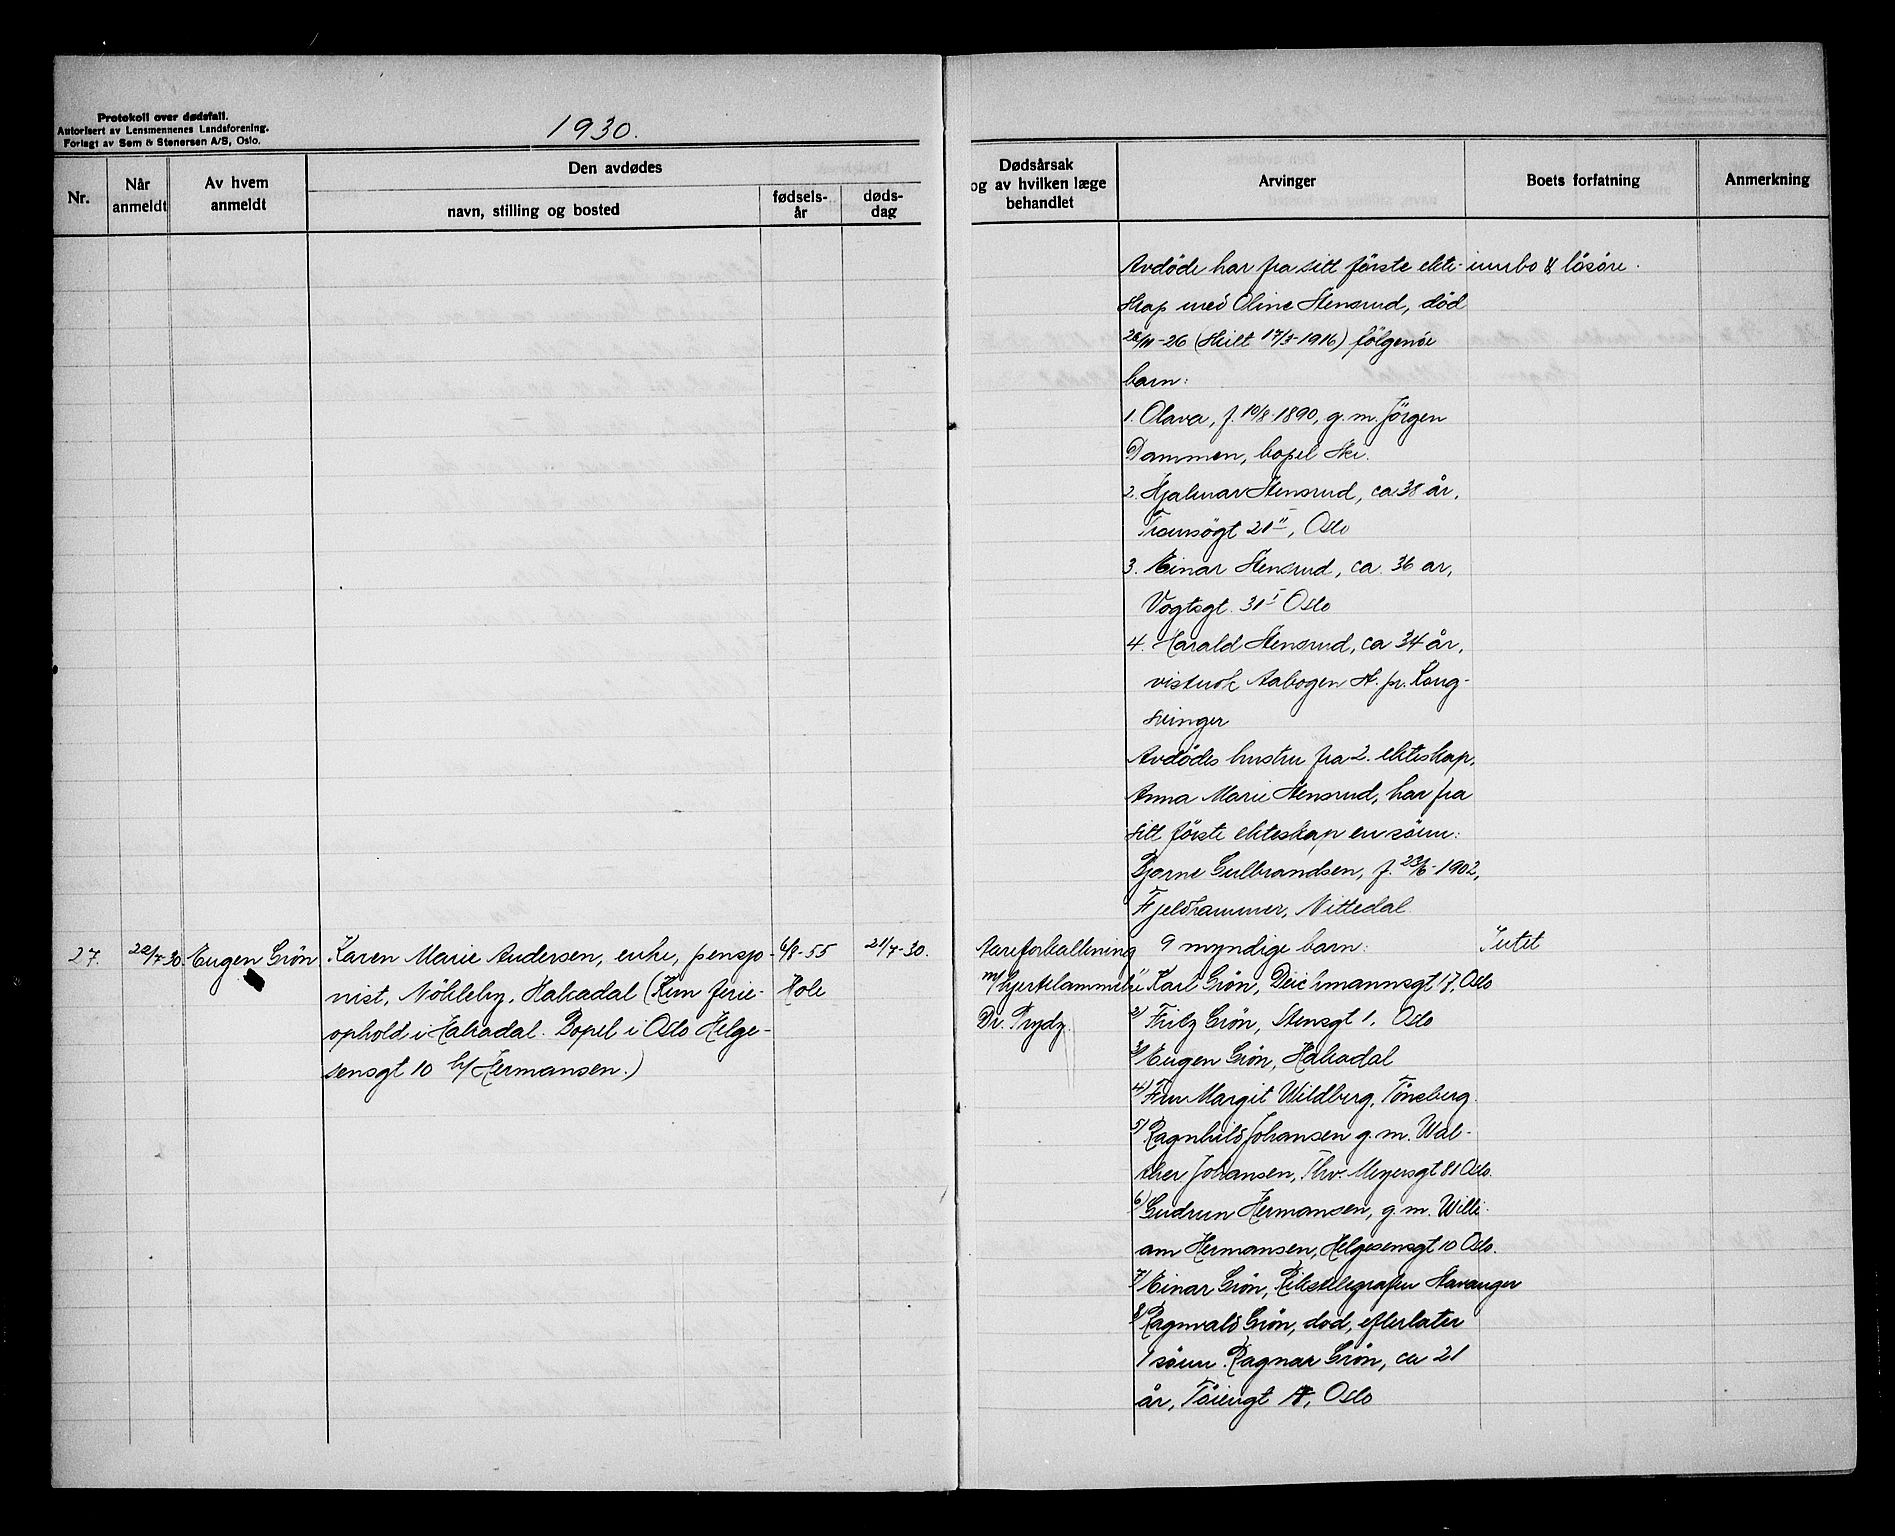 Protokoll over dødsfall.
Autorisert av Lensmennenes Landsforening.
Forlagt av Sem & Stenersen A/S, Oslo.
1930.
Nr.
Når anmeldt
Av hvem anmeldt
Den avdødes
navn, stilling og bosted
fødsels-år
døds-dag
Dødsårsak og av hvilken læge behandlet
Arvinger
Boets forfatning
Anmerkning
Avdöde har fra sitt förste ekte-
skap med Oline Stensrud, död
-26 (skilt 17/3-1916) fölgende
barn:
1. Olava, f. 10/8-1890, g.m. Jörgen
Dammen, bopel Ski.
2. Hjalmar Stensrud, ca 38 år,
Tromsögt 20 II, Oslo
3. Einar Stensrud, ca. 36 ar,
Vogtsgt. 30 I Oslo
4. Harald Stensrud, ca 34 år,
vistnok Aabogen st. pr. Kong-
svinger
Avdödes hustru fra 2. ekteskap,
Anna Marie Stensrud, har fra
sitt förste ekteskap en sönn:
Bjarne Gulbrandsen, f. 23/6-1902,
Fjeldhammer, Nittedal.
innbo & lösöre.
27.
22/7-30.
Eugen Grön
Karen Marie Andersen, enke, pensjo-
nist, Nökleby, Hakadal (Kun ferie-
ophold i Hakadal. Bopel i Oslo Helge-
sensgt 10 h/ Hermansen.)
6/8-55
Hole
21/7-30.
Aareforkalkning
m/ hjertelammelse
Dr. Prydz.
9 myndige barn:
1) Karl Grön, Deichmannsgt 17, Oslo
2) Fritz Grön, Stensgt 1. Oslo
3) Eugen Grön, Hakadal
4) Fru Margit Wildberg, Tönsberg.
5) Ragnhild Johansen g.m. Wal-
ther Johansen, Thv. Meyersgt 81 Oslo.
6) Gudrun Hermansen, g.m. Willi-
am Hermansen, Helgesensgt 10 Oslo.
7) Einar Grön, Rikstelegrafen Stavanger
8) Ragnvald Grön, död, efterlater
1 sönn. Ragnar Grön, ca 21
år, Töiengt , Oslo
Intet